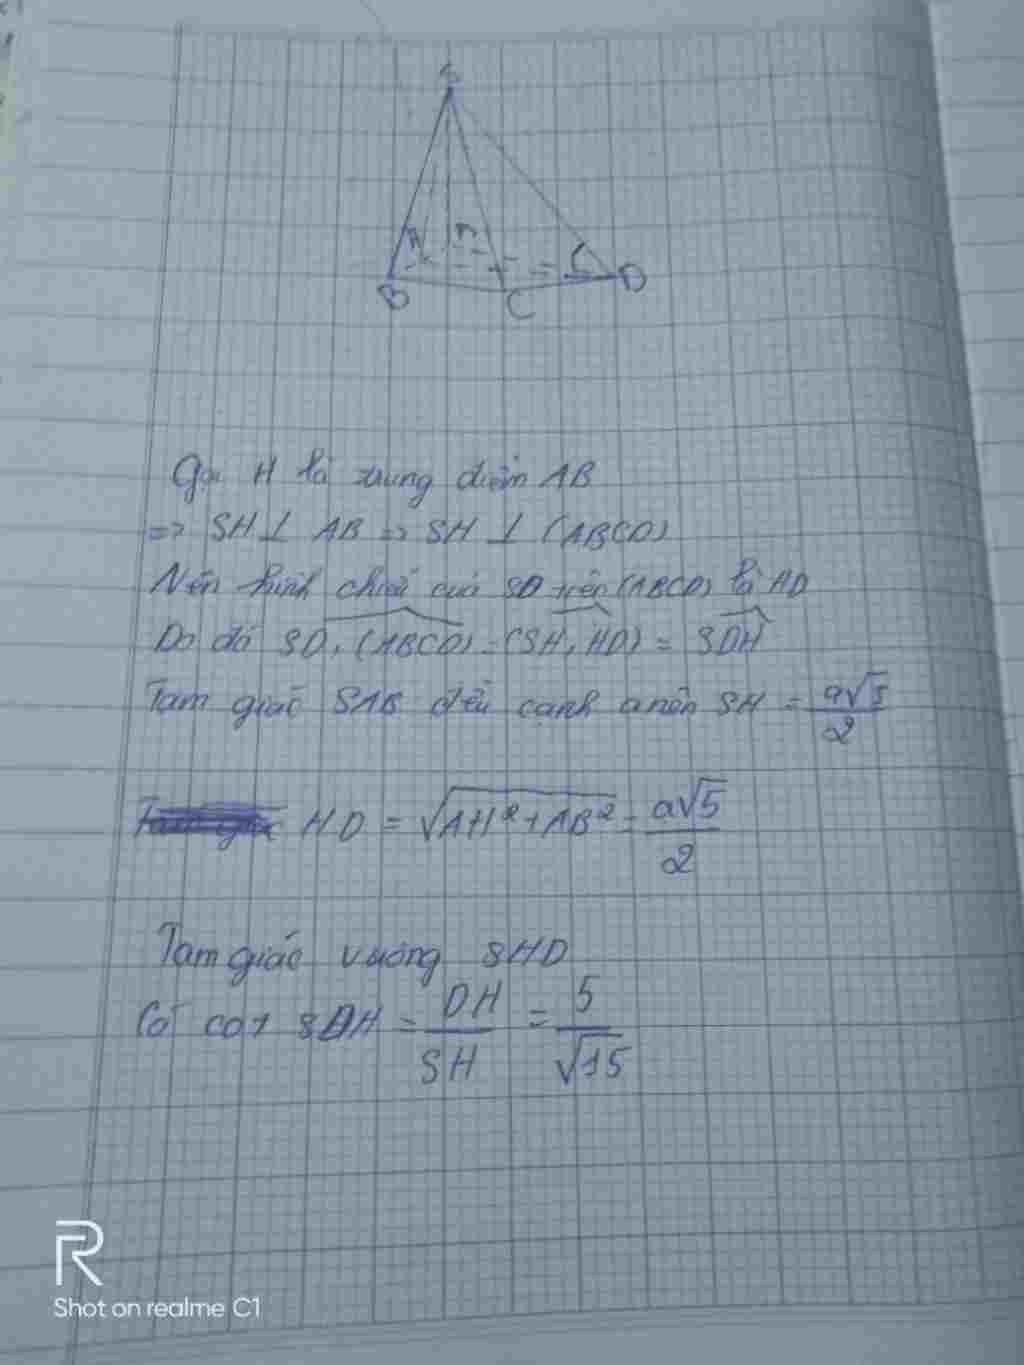 S
A
H
B
C
D
Gọi H là trung điểm AB
=> SH ⊥ AB => SH ⊥ (ABCD)
Nên hình chiếu của SD trên (ABCD) là HD
Do đó SD, (ABCD) = (SH, HD) = SDH
Tam giác SAB đều cạnh a nên SH = a√3/2
HD = √AH²+AB² = a√5/2
Tam giác vuông SHD
Có cot SDH = DH/SH = 5/√15
R
Shot on realme C1